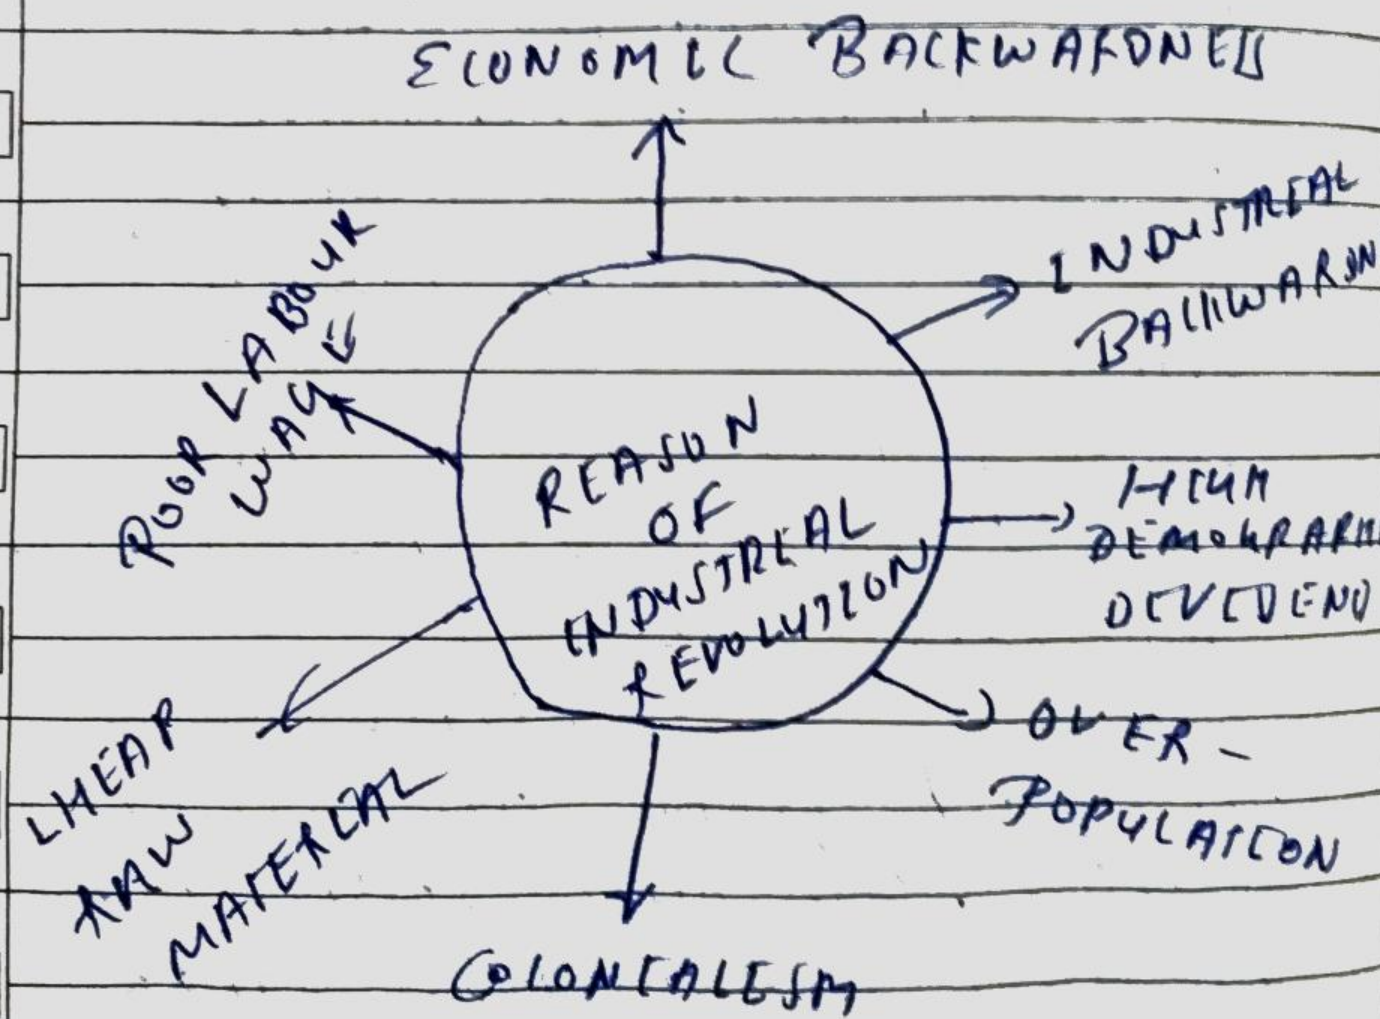 ECONOMIC BACKWARDNESS
INDUSTREAL
BACKWARDN
POOR LABOUR
WAGE
REASON
OF
INDUSTREAL
REVOLUTION
HIGH
DEMOGRAPHI
DEVIDEND
OVER-
POPULATION
CHEAP
RAW
MATERIAL
COLONIALISM